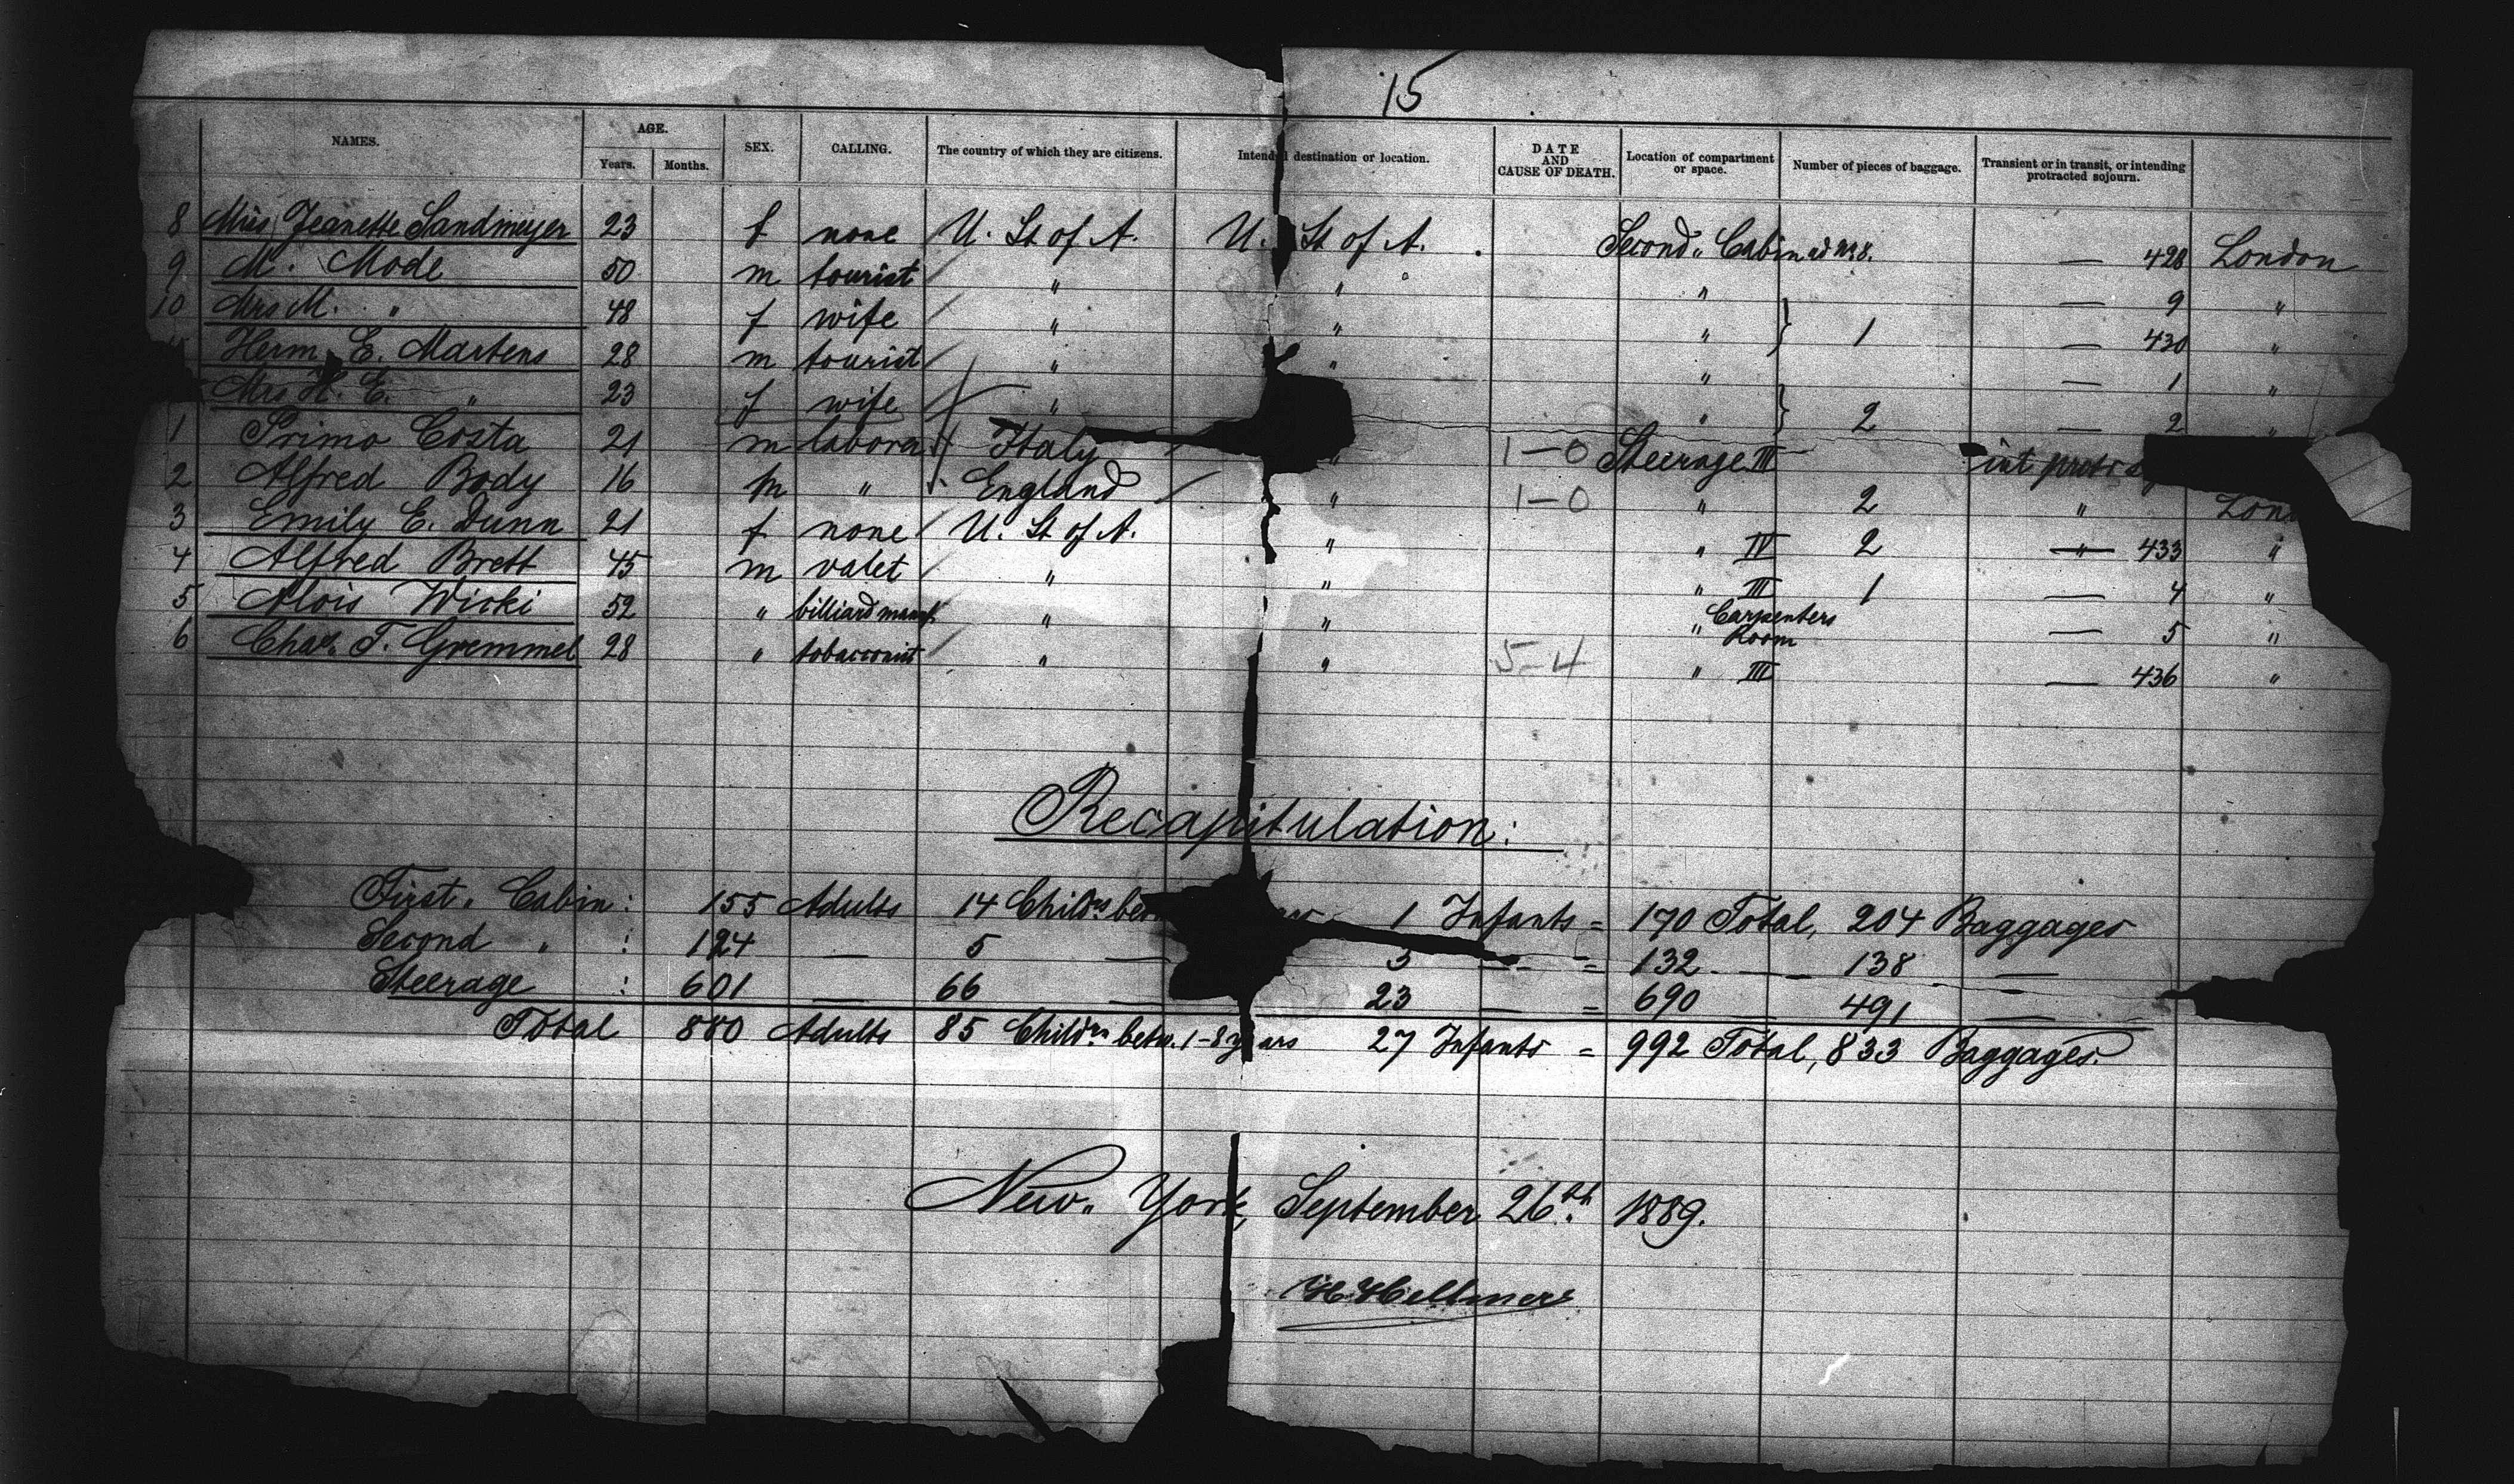 15
NAMES. AGE. Years. Months. SEX. CALLING. The country of which they are citizens. Intended destination or location. DATE AND CAUSE OF DEATH. Location of compartment or space. Number of pieces of baggage. Transient or in transit, or intending protracted sojourn.
8 Miss Jeanette Sandmeyer 23 f none U. St of A. U. St of A. Second Cabin 428 London
9 M. Mode 50 m tourist " " " — 9 "
10 Mrs M. " 48 f wife " " " } 1 — 430 "
Herm. E. Martens 28 m tourist " " " — 1 "
Mrs H. E. " 23 f wife " " } 2 — 2 "
1 Primo Costa 21 m labora Italy " 1-0 Steerage III int
2 Alfred Body 16 m " England " 1-0 " 2 " Lon
3 Emily E. Dunn 21 f none U. St of A. " " IV 2 — " — 433 "
4 Alfred Brett 45 m valet " " " III 1 — 4 "
5 Alois Wicki 52 " billiard " " " Carpenters Room — 5 "
6 Chas. T. Gremmel 28 " tobacconist " " 5-4 " III — 436 "
Recapitulation:
First. Cabin: 155 Adults 14 Childrn 1 Infants = 170 Total, 204 Baggages
Second " : 124 — 5 — 3 — = 132 — 138 —
Steerage : 601 — 66 — 23 — = 690 — 491 —
Total 880 Adults 85 Childrn betw. 1-8 years 27 Infants = 992 Total, 833 Baggages.
New York, September 26th. 1889.
H. Hellmers